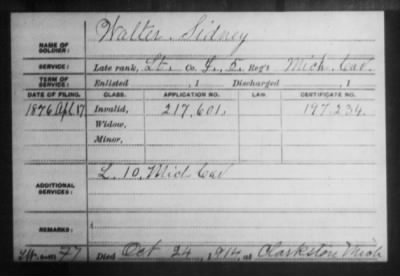 Walter Sidney
NAME OF SOLDIER:
SERVICE: Late rank, Lt. Co. G, 5 Reg't Mich. Cav.
TERM OF SERVICE: Enlisted , 1 Discharged , 1
DATE OF FILING. CLASS. APPLICATION NO. LAW. CERTIFICATE NO.
1876 Apl. 17 Invalid, 217.601. 197.234.
Widow,
Minor,
ADDITIONAL SERVICES: L. 10. Mich Cav
REMARKS:
Died Oct 24, 1914, at Clarkston Mich